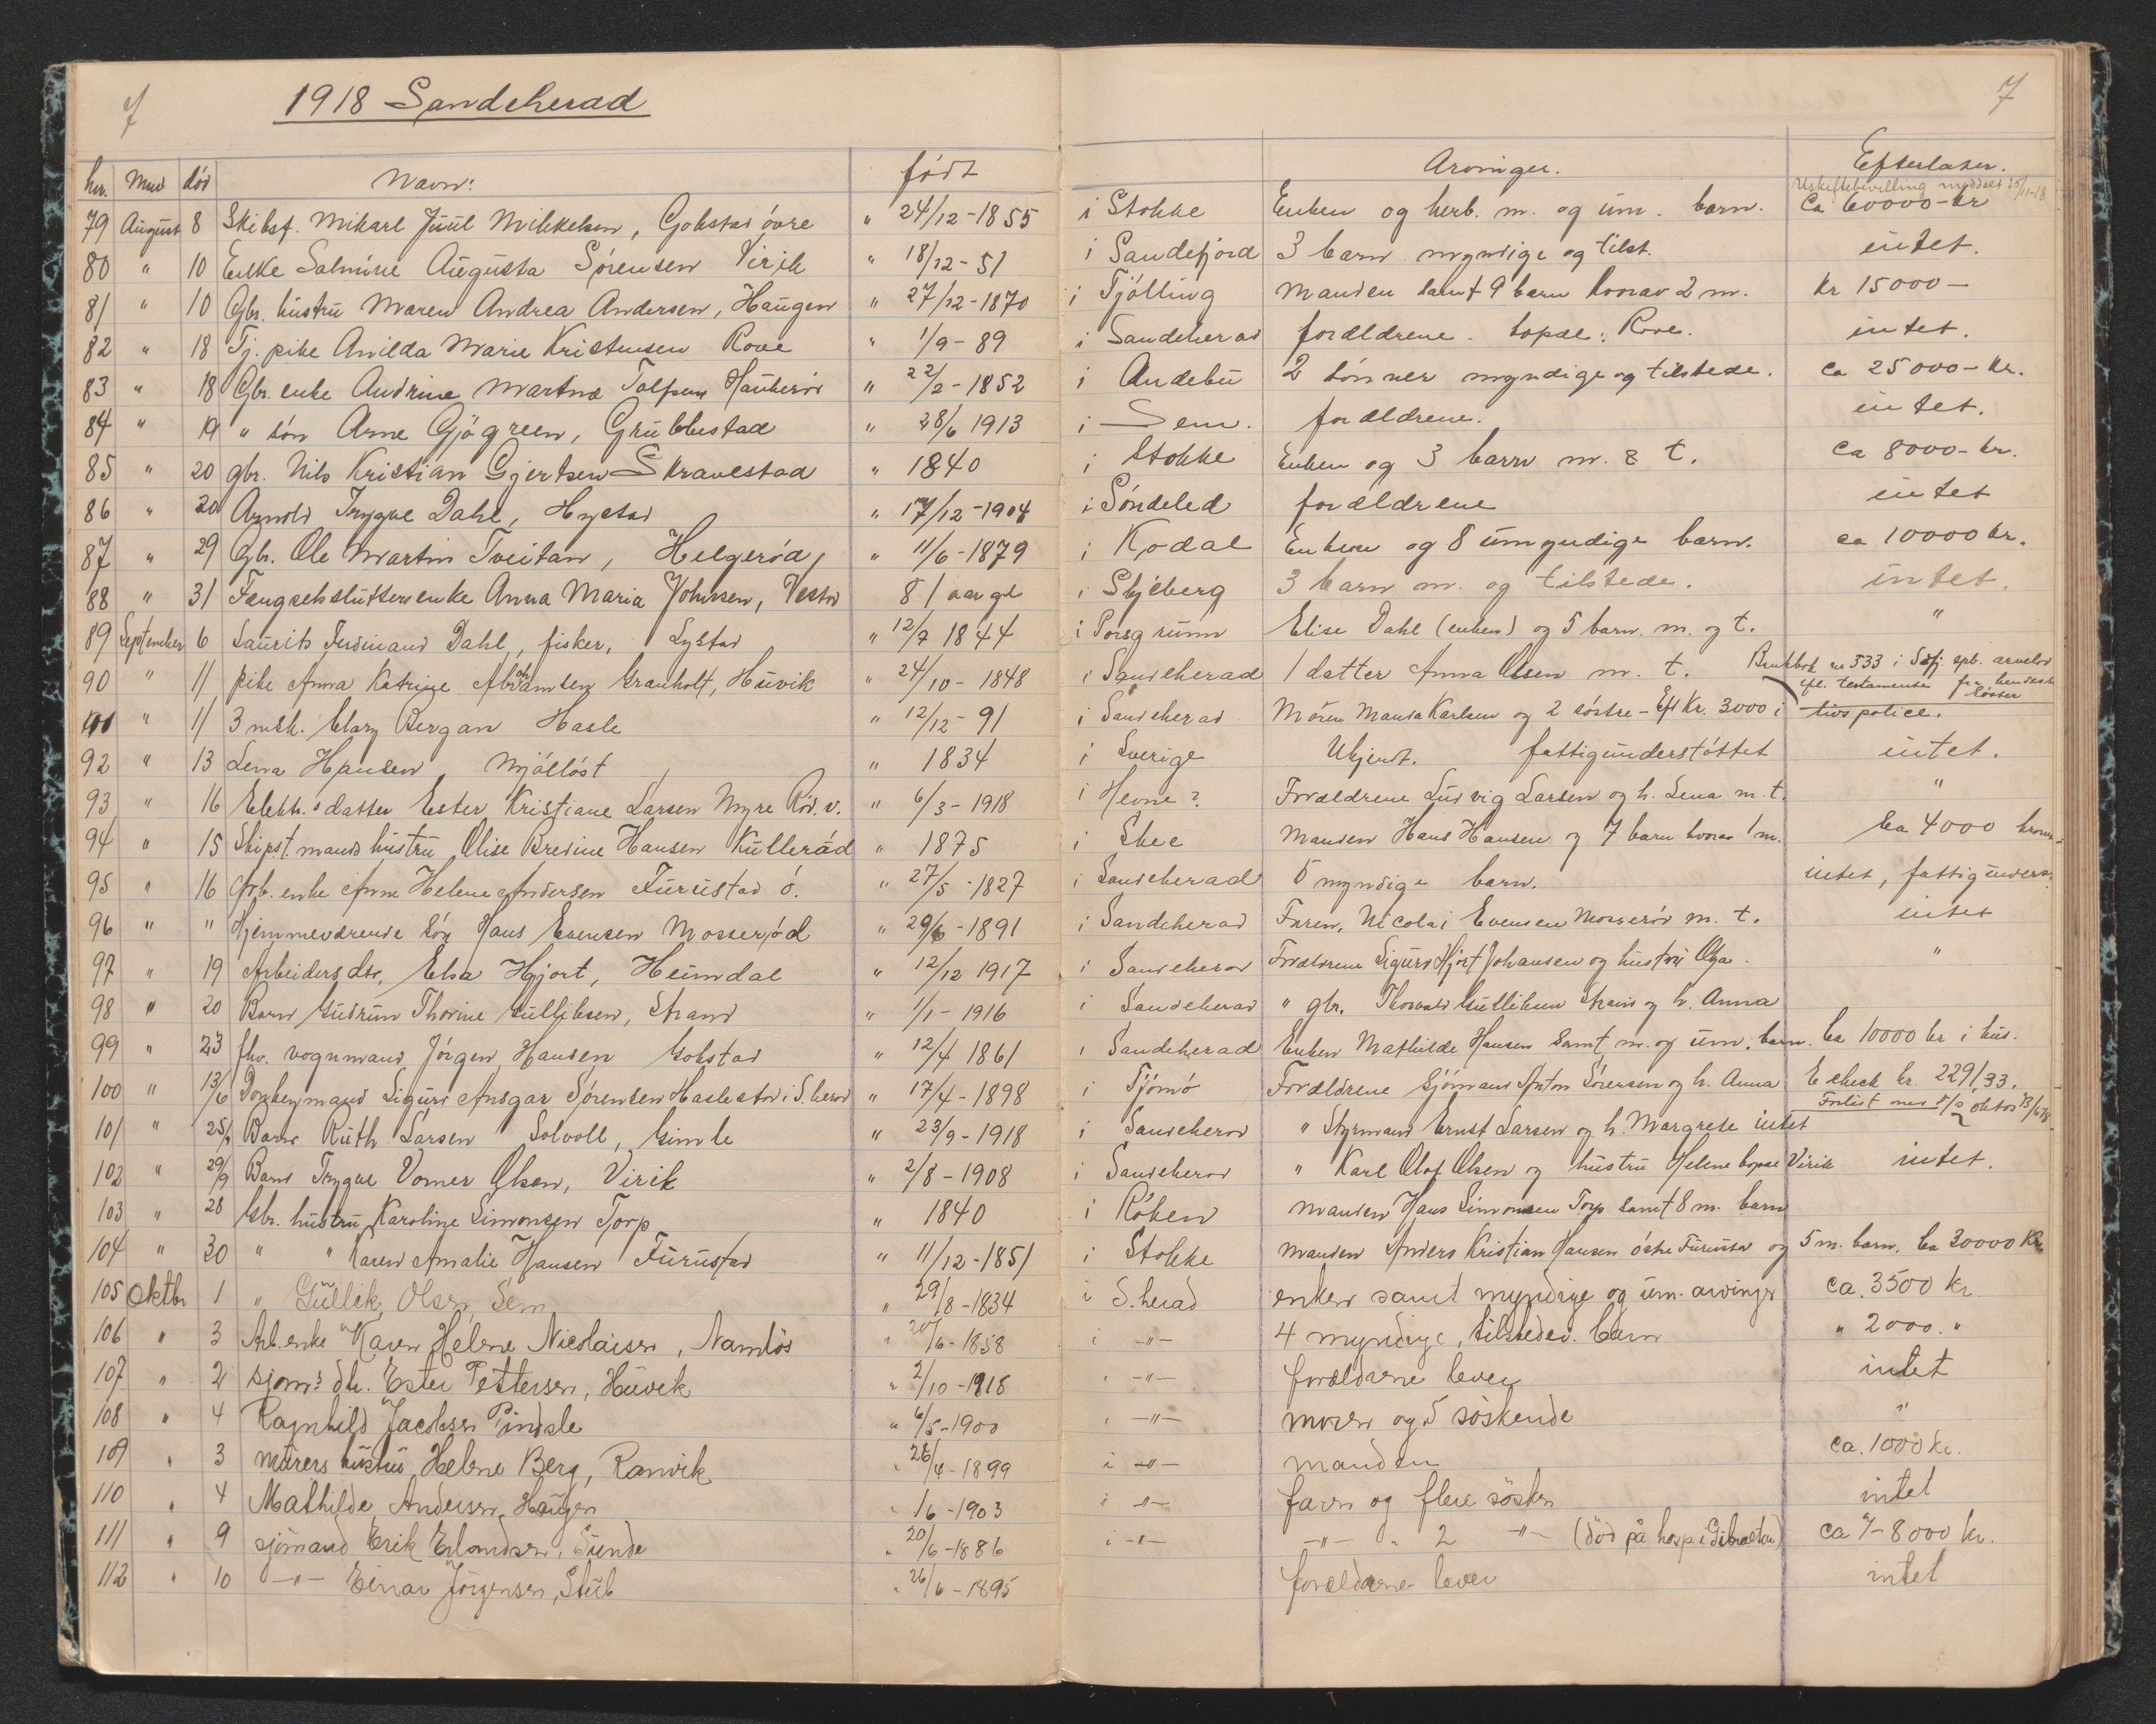 7 1918 Sandeherad 7
nr. Mnd död Navn: födt Arvinger. Efterlater.
Uskiftebevilling meddelt 25/11-18
79 August 8 Skibsf. Mikael Juul Mikkelsen, Gokstad övre " 24/12-1855 i Stokke Enken og herb. m. og um. barn. Ca 60000-kr
80 " 10 Enke Salmine Augusta Sørensen Virik " 18/12-51 i Sandefjord 3 barn myndige og tilst. intet.
81 " 10 Gbr. hustru Maren Andrea Andersen, Haugen " 27/12-1870 i Tjölling Manden samt 9 barn hvorav 2 m. kr 15000-
82 " 18 Tj. pike Anilda Marie Kristensen Rove " 1/9-89 i Sandeherad forældrene. bopæl: Rove. intet.
83 " 18 Gbr. enke Andrine Martine Tolfsen Haukeröd " 22/2-1852 i Andebu 2 sönner myndige og tilstede. ca 25000-kr.
84 " 19 " sön Arne Gjögreen, Grubbestad " 28/6 1913 i Sem. forældrene. intet.
85 " 20 gbr. Nils Kristian Gjertsen Skravestad " 1840 i Stokke Enken og 3 barn m. & t. Ca 8000-kr.
86 " 20 Arnold Trygve Dahl, Hystad " 17/12-1904 i Söndeled forældrene intet
87 " 29 Gbr. Ole Martin Tveitan, Helgerød, " 11/6-1879 i Kodal Enken og 8 umyndige barn. ca 10000 kr.
88 " 31 Fængselsslutterenke Anna Maria Johnsen, Vestad 81 aar gl i Skjeberg 3 barn m. og tilstede. intet.
89 September 6 Laurits Ferdinand Dahl, fisker, Lystad " 12/7 1844 i Porsgrunn Elise Dahl (enken) og 5 barn. m. og t. "
90 " 11 pike Anna Katrine Abrahamsen Granholt, Huvik " 24/10-1848 i Sandeherad 1 datter Anna Olsen m. t. Bankbok nr 533 i Sdfj. spb. arvelod
efl. testamente fra hendes søster
" 11 3 msk. Clary Bergan Hasle " 12/12-91 i Sandeherad Moren Manda Karlsen og 2 söstre - Eft Kr. 3000 i livspolice.
92 " 13 Lena Hansen, Mjölløst " 1834 i Sverige Ukjendt. fattigunderstöttet intet.
93 " 16 Elektr.s datter Ester Kristiane Larsen Myre Röd. v. " 6/3-1918 i Hevne? Forældrene Ludvig Larsen og h. Lena m. t. "
94 " 15 Skipst. mands hustru Olise Bredine Hansen Kulleröd " 1875 i Skee Manden Hans Hansen og 7 barn hvorav 1 m. Ca 4000 kroner
95 " 16 Arb. enke Anne Helene Andersen Furustad ö. " 27/5-1827 i Sandeherad 5 myndige barn. intet, fattigunders.
96 " " Hjemmeværende sön Hans Evensen Mosseröd " 29/6-1891 i Sandeherad Faren, Nicolai Evensen Mosseröd m. t. intet
97 " 19 Arbeiders dtr. Elsa Hjort, Heimdal " 12/12 1917 i Sandeherad Forældrene Sigurd Hjort Johansen og hustru Olga. "
98 " 20 Barn Gudrun Thorine Gulliksen, Strand " 1/1-1916 i Sandeherad " gbr. Thorvald Gulliksen Strand og h. Anna
99 " 23 fhv. vognmand Jörgen Hansen Gokstad " 12/4 1861 i Sandeherad Enken Mathilde Hansen samt m. og um. barn. Ca 10000 kr i hus.
100 " 13/6 Donkeymand Sigurd Ansgar Sörensen Haslestad i S.herad " 17/4-1898 i Tjömö Forældrene Sjömand Anton Sörensen og h. Anna E check kr. 229,33.
Forlist med S/S Oktos 13/6 18
101 " 25/9 Barn Ruth Larsen Solvoll, Gimle " 23/9-1918 i Sandeherad " Styrmand Ernst Larsen og h. Margrete intet
102 " 29/9 Barn Trygve Vomer Olsen, Virik " 2/8-1908 i Sandeherad " Karl Olaf Olsen og hustru Helene bopæl Virik intet.
103 " 28 Gbr. hustru Karoline Simonsen Torp " 1840 i Röken Manden Hans Simonsen Torp samt 8 m. barn
104 " 30 " " Karen Amalie Hansen Furustad " 11/12-1851 i Stokke Manden Anders Kristian Hansen östre Furustad og 5 m. barn. Ca 30000 Kr
105 Oktbr 1 " Gullik Olsen, Sem " 29/8-1834 i S.herad enken samt myndige og um. arvinger ca. 3500 kr
106 " 3 Arb. enke Karen Helene Nicolaisen, Namløs " 20/6-1858 i -"- 4 myndige, tilstedev. barn " 2000. "
107 " 2 sjöm.s dtr. Ester Pettersen, Huvik " 2/10-1918 " -"- forældrene lever intet
108 " 4 Ragnhild Jacobsen Pindsle " 6/5-1900 " -"- moren og 5 söskende "
109 " 3 murers hustru Helene Berg, Ranvik " 26/4-1899 i -"- manden ca. 1000 kr.
110 " 4 Mathilde Andersen, Haugen " /6-1903 i -"- faren og flere sösken intet
111 " 9 sjömand Erik Erlandsen, Sunde " 20/6-1886 i -"- -"- " 2 -"- (död på hosp. i Gibraltar) ca 7-8000 kr.
112 " 10 -"- Einar Jörgensen, Stub " 26/6-1895 forældrene lever intet